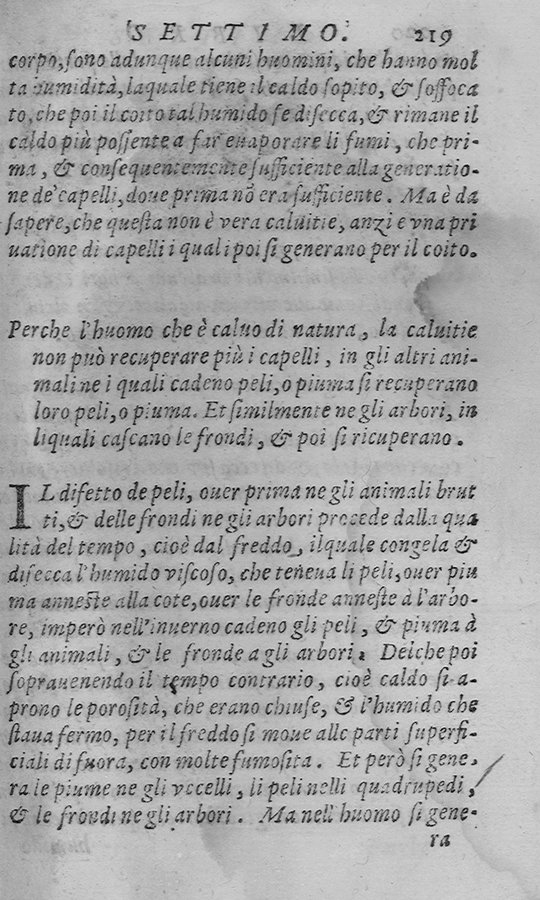 SETTIMO. 219
corpo, sono adunque alcuni huomini, che hanno mol
ta humidità, laquale tiene il caldo sopito, & soffoca
to, che poi il coito tal humido se disecca, & rimane il
caldo più possente a far euaporare li fumi, che pri-
ma, & consequentemente sufficiente alla generatio-
ne de' capelli, doue prima nō era sufficiente. Ma è da
sapere, che questa non è vera caluitie, anzi e vna pri
uatione di capelli i quali poi si generano per il coito.
Perche l'huomo che è caluo di natura, la caluitie
non può recuperare più i capelli, in gli altri ani-
mali ne i quali cadeno peli, o piuma si recuperano
loro peli, o piuma. Et similmente ne gli arbori, in
li quali cascano le frondi, & poi si ricuperano.
IL difetto de peli, ouer prima ne gli animali brut
ti, & delle frondi ne gli arbori procede dalla qua
lità del tempo, cioè dal freddo, ilquale congela &
disecca l'humido viscoso, che teneua li peli, ouer piu
ma anneste alla cote, ouer le fronde anneste à l'arbo-
re, imperò nell'inuerno cadeno gli peli, & piuma à
gli animali, & le fronde a gli arbori. Deiche poi
soprauenendo il tempo contrario, cioè caldo si a-
prono le porosità, che erano chiuse, & l'humido che
staua fermo, per il freddo si moue alle parti superfi-
ciali di fuora, con molte fumosita. Et però si gene-
ra le piume ne gli vccelli, li peli nelli quadrupedi,
& le frondi ne gli arbori. Ma nell'huomo si gene-
ra